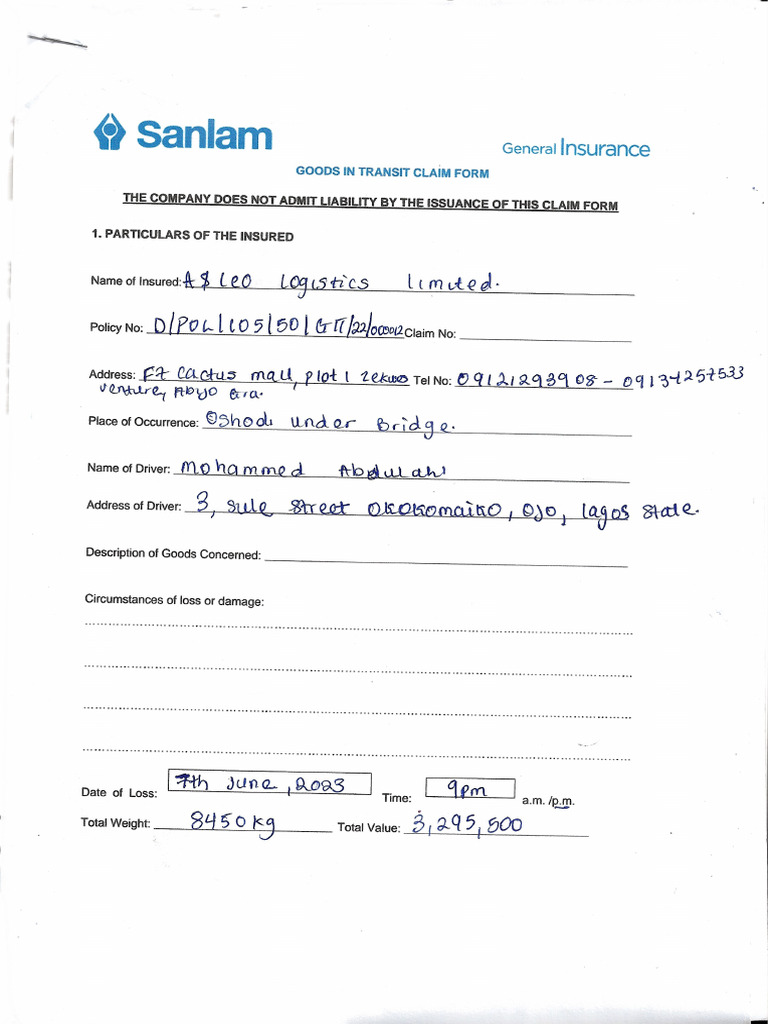 Sanlam
General Insurance
GOODS IN TRANSIT CLAIM FORM
THE COMPANY DOES NOT ADMIT LIABILITY BY THE ISSUANCE OF THIS CLAIM FORM
1. PARTICULARS OF THE INSURED
Name of Insured: A$LEO Logistics Limited.
Policy No: D/POL/105/50/GIT/22/000012 Claim No:
Address: F7 Cactus mall, plot 1 Tel No: 09121293908 - 09134257533
venture,
Place of Occurrence: Oshodi under Bridge.
Name of Driver: Mohammed Abdulahi
Address of Driver: 3, Sule Street OKOKOmaiKO, OJO, Lagos State.
Description of Goods Concerned:
Circumstances of loss or damage:
Date of Loss: 7th June, 2023 Time: 9pm a.m. /p.m.
Total Weight: 8450kg Total Value: 3,295,500